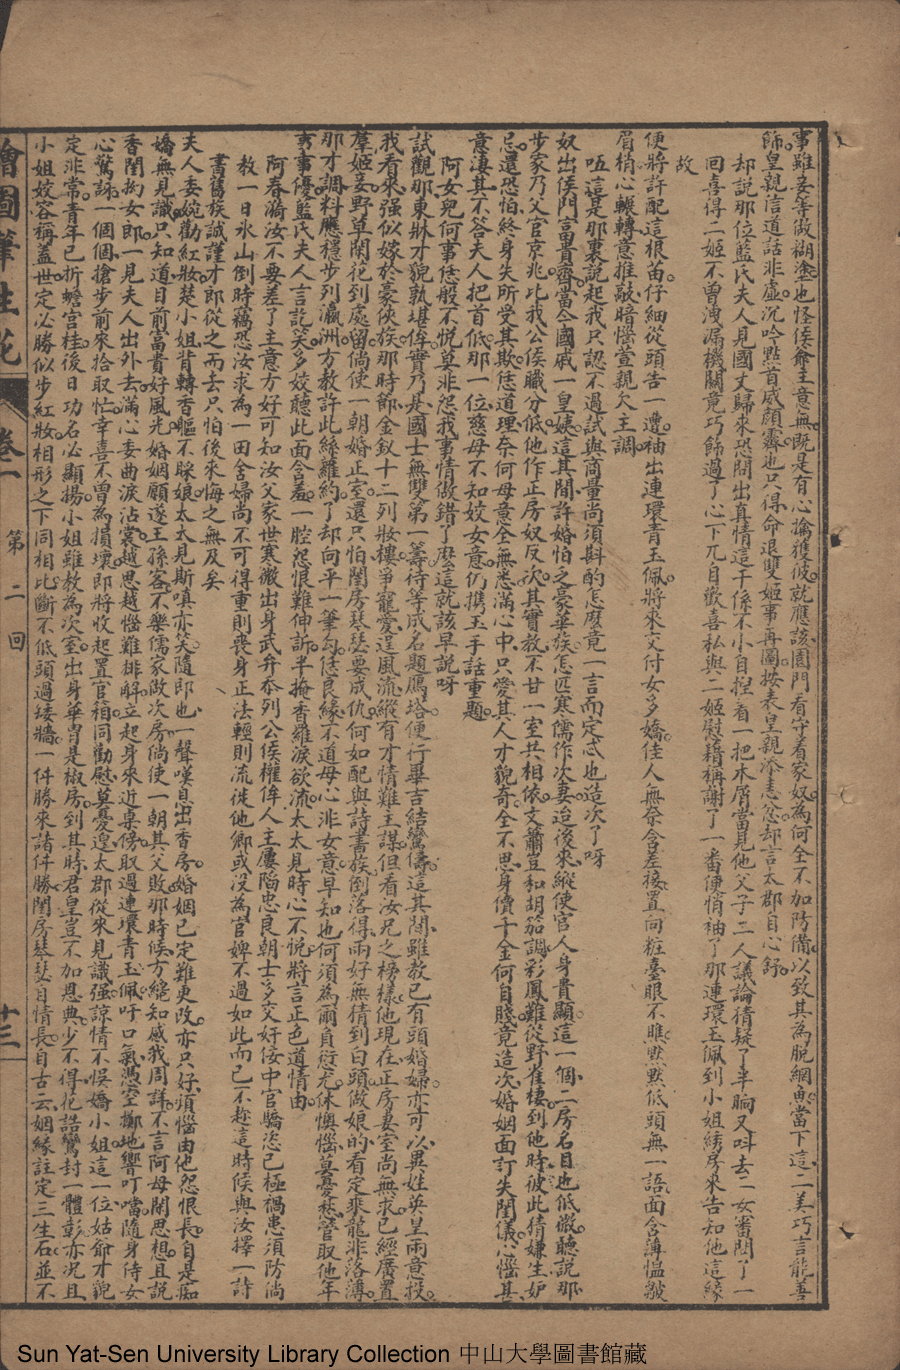 事雖妾等做糊塗也怪侯爺主意無既是有心擒獲彼就應該園門看守着家奴為何全不加防備以致其為脫網魚當下這二美巧言能善
飾皇親信道話非虛沉吟點首威顏霽也只得命退雙姬事再圖按表皇親添恚忿却言太郡自心舒
却說那位藍氏夫人見國丈歸來恐鬧出真情這干係不小自捏着一把木屑當見他父子二人議論猜疑了半晌又呌去二女審問了一
回喜得二姬不曾洩漏機關竟巧飾過了心下兀自歡喜私與二姬慰藉稱謝了一番便悄袖了那連環玉佩到小姐綉房來告知他這緣
故
便將許配這根苗仔細從頭告一遭袖出連環青玉佩將來交付女多嬌佳人無奈含羞接置向粧臺眼不瞧默默低頭無一語面含薄慍皺
眉梢心轆轉意推敲暗慍萱親欠主調
咂這是那裏說起我只認不過試與商量尚須斟酌怎麽竟一言而定忒也造次了呀
奴出侯門富貴齊當今國戚一皇姨這其間許婚怕乏豪華族怎匹寒儒作次妻迨後來縱使官人身貴顯這一個二房名目也低微聽說那
步家乃父官京兆比我公侯職分低他作正房奴反次其實教不甘一室共相依文簫豈和胡笳調彩鳳難從野雀棲到他時彼此猜嫌生妒
忌還恐怕終身失所受其欺恁道理奈何母意全無悉滿心中只愛其人才貌奇全不思身價千金何自賤竟造次婚姻面訂失閨儀心惱甚
意淒其不答夫人把首低那一位慈母不知姣女意仍携玉手話重題
阿女兒何事恁般不悅莫非怨我事情做錯了麽這就該早說呀
試觀那東牀才貌孰堪侔實乃是國士無雙第一籌待等成名題鴈塔便行畢吉結鸞儔這其間雖教已有頭婚婦亦可以異姓英皇兩意投
我看來强似嫁於豪俠族那時節金釵十二列妝樓爭寵愛逞風流縱有才情難主謀但看汝兄之榜樣他現在正房妻室尚無求已經廣置
羣姬妾野草閑花到處留倘使一朝婚正室還只怕閨房琴瑟要成仇何如配與詩書族倒落得兩好無猜到白頭做娘的看定乘龍非落薄
那才調料應穩步列瀛洲方教許此絲蘿約了却向平一筆勾恁良緣不道母心非女意早知也何須為爾負愆尤休懊惱莫憂愁管取他年
事事優藍氏夫人言訖笑多姣聽此面含羞一腔怨恨難伸訴半掩香羅淚欲流太太見時心不悅將言正色道情由
阿春漪汝不要差了主意方好可知汝父家世寒微出身武弁忝列公侯權侔人主屢陷忠良朝士多交奸佞中官驕恣已極禍患須防倘
教一日氷山倒時竊恐汝求為一田舍婦尚不可得重則喪身正法輕則流徙他鄉或没為官婢不過如此而已不趁這時候與汝擇一詩
書舊族誠謹才郎從之而去只怕後來悔之無及矣
夫人委婉勸紅妝楚小姐背轉香軀不睬娘太太見斯嗔亦笑隨郎也一聲嘆息出香房婚姻已定難更改亦只好煩惱由他怨恨長自是痴
嬌無見識只知道目前富貴好風光婚姻願遂王孫客不樂儒家做次房倘使一朝其父敗那時候方纔知感我周詳不言阿母閑思想且說
香閨拗女郎一見夫人出外去滿心委曲淚沾裳越思越惱難排解立起身來近桌傍取過連環青玉佩吁口氣憑空擲地響叮噹隨身侍女
心驚訝一個個搶步前來拾取忙幸喜不曾為損壞即將收起置官箱同勸慰莫憂遑太郡從來見識强諒情不悞嬌小姐這一位姑爺才貌
定非常青年已折蟾宮桂後日功名必顯揚小姐雖教為次室出身華冑是椒房到其時君皇豈不加恩典少不得花誥鸞封一體彰亦况且
小姐姣容稱蓋世定必勝似步紅妝相形之下同相比斷不低頭過矮牆一仟勝來諸仟勝閨房琴瑟自情長自古云姻緣註定三生石並不
繪圖筆生花 卷一 第二回 廿三
Sun Yat-Sen University Library Collection 中山大學圖書館藏